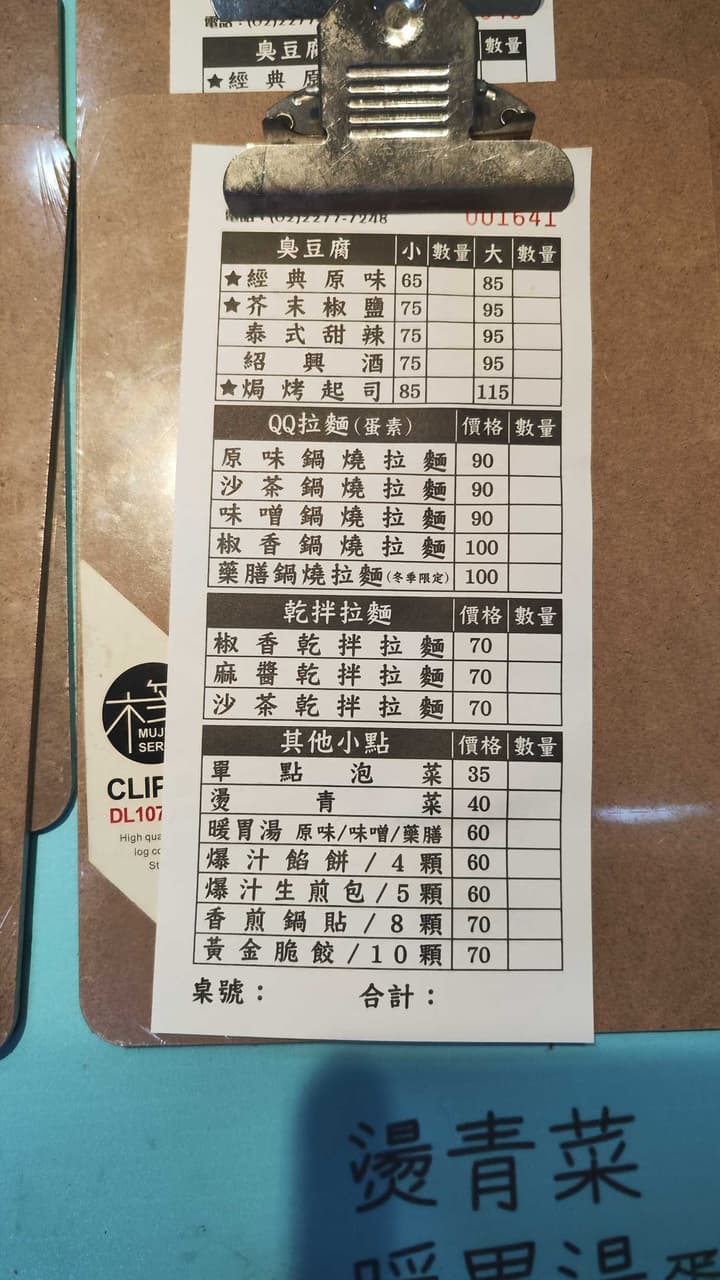 臭豆腐 數量
★經典原
電話：(02)2277-7248 001641
臭豆腐 小 數量 大 數量
★經典原味 65 85
★芥末椒鹽 75 95
泰式甜辣 75 95
紹興酒 75 95
★焗烤起司 85 115
QQ拉麵(蛋素) 價格 數量
原味鍋燒拉麵 90
沙茶鍋燒拉麵 90
味噌鍋燒拉麵 90
椒香鍋燒拉麵 100
藥膳鍋燒拉麵(冬季限定) 100
乾拌拉麵 價格 數量
椒香乾拌拉麵 70
麻醬乾拌拉麵 70
沙茶乾拌拉麵 70
其他小點 價格 數量
單點泡菜 35
燙青菜 40
暖胃湯 原味/味噌/藥膳 60
爆汁餡餅/4顆 60
爆汁生煎包/5顆 60
香煎鍋貼/8顆 70
黃金脆餃/10顆 70
桌號： 合計：
MUJ
SER
CLIP
DL107
High qua
log co
St
燙青菜
暖胃湯